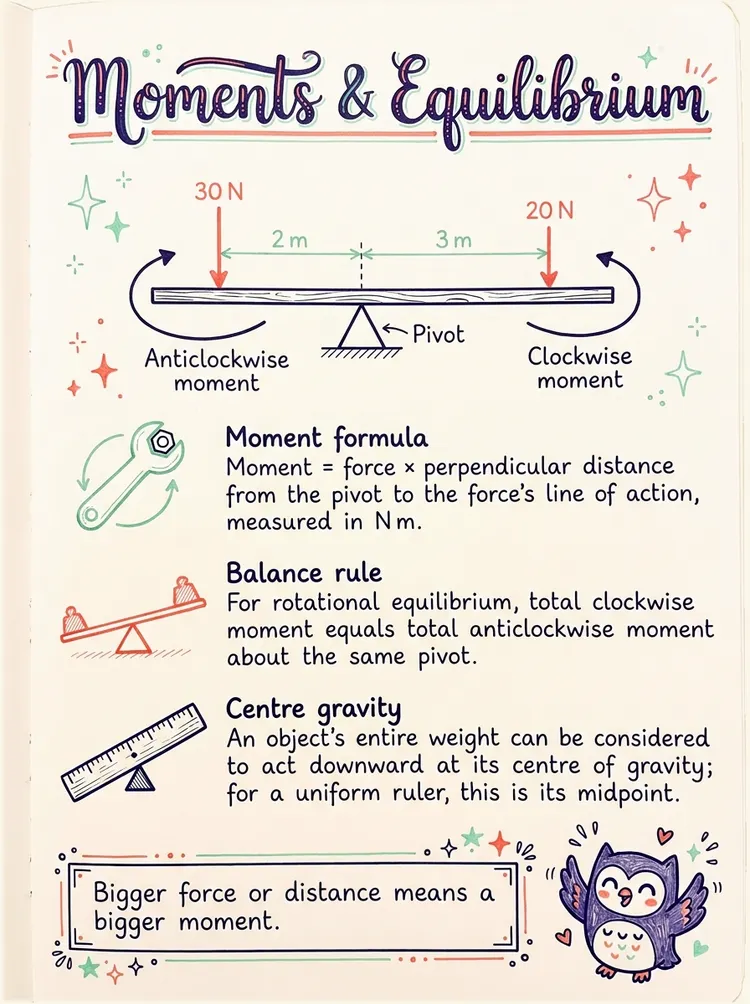 Moments & Equilibrium
30 N
20 N
2 m
3 m
Pivot
Anticlockwise
moment
Clockwise
moment
Moment formula
Moment = force × perpendicular distance
from the pivot to the force's line of action,
measured in N m.
Balance rule
For rotational equilibrium, total clockwise
moment equals total anticlockwise moment
about the same pivot.
Centre gravity
An object's entire weight can be considered
to act downward at its centre of gravity;
for a uniform ruler, this is its midpoint.
Bigger force or distance means a
bigger moment.